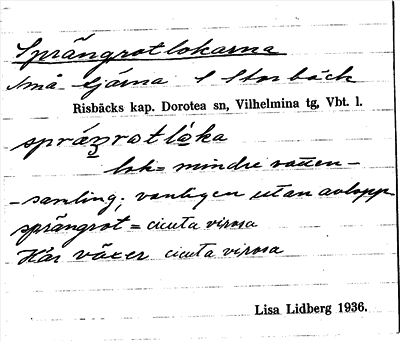 Sprängrotlokarna
Små tjärna i Storbäck
Risbäcks kap. Dorotea sn, Vilhelmina tg, Vbt. l.
språŋratlȯka
lok = mindre vatten-
-samling; vanligen utan avlopp
sprängrot = cicuta virosa
Här växer cicuta virosa
Lisa Lidberg 1936.